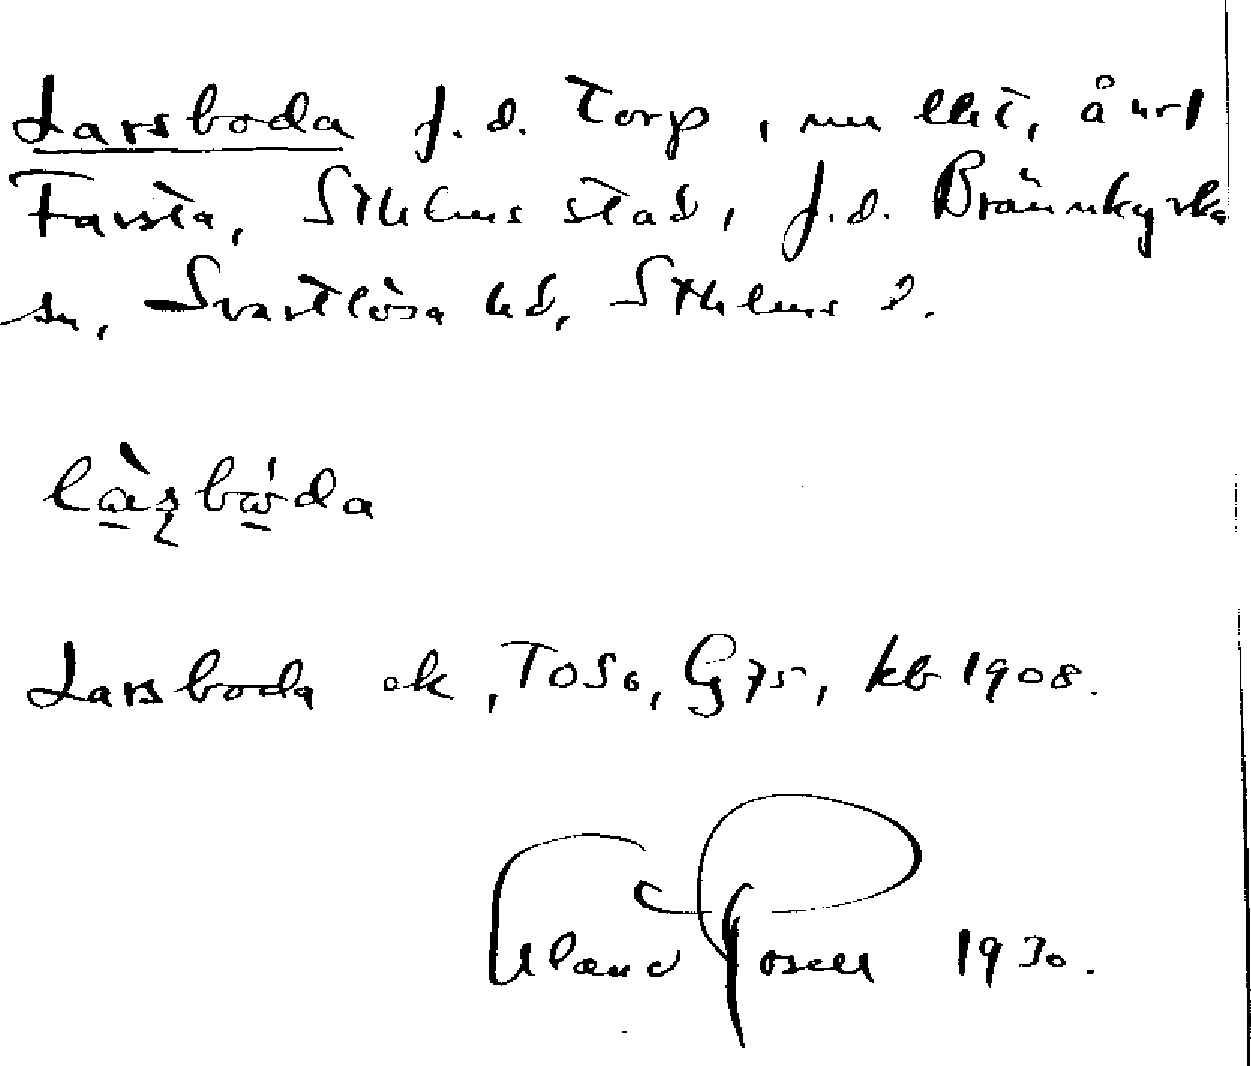 Larsboda f.d. Torp, nu lht, å url
Farsta, Sthlms stad, f.d. Brännkyrka
sn, Svartlösa hd, Sthlms l.
làṣbo̱´da
Larsboda ek, TOS6, G 75, kb 1908.
1930.